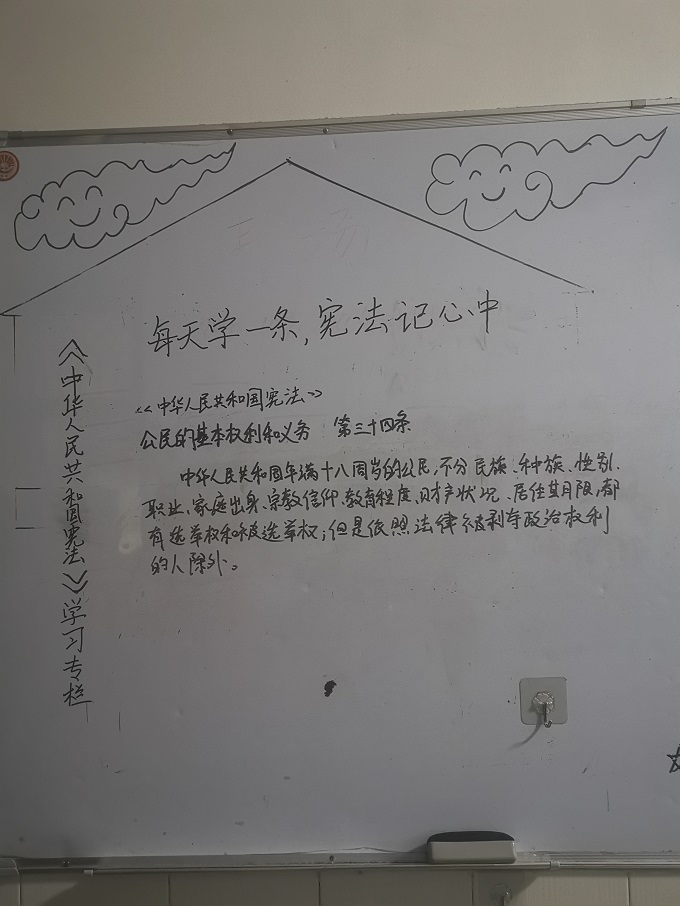 每天学一条,宪法记心中
《中华人民共和国宪法》学习专栏
<<中华人民共和国宪法>>
公民的基本权利和义务 第三十四条
中华人民共和国年满十八周岁的公民,不分民族、种族、性别、
职业、家庭出身、宗教信仰、教育程度、财产状况、居住期限,都
有选举权和被选举权;但是依照法律被剥夺政治权利
的人除外。